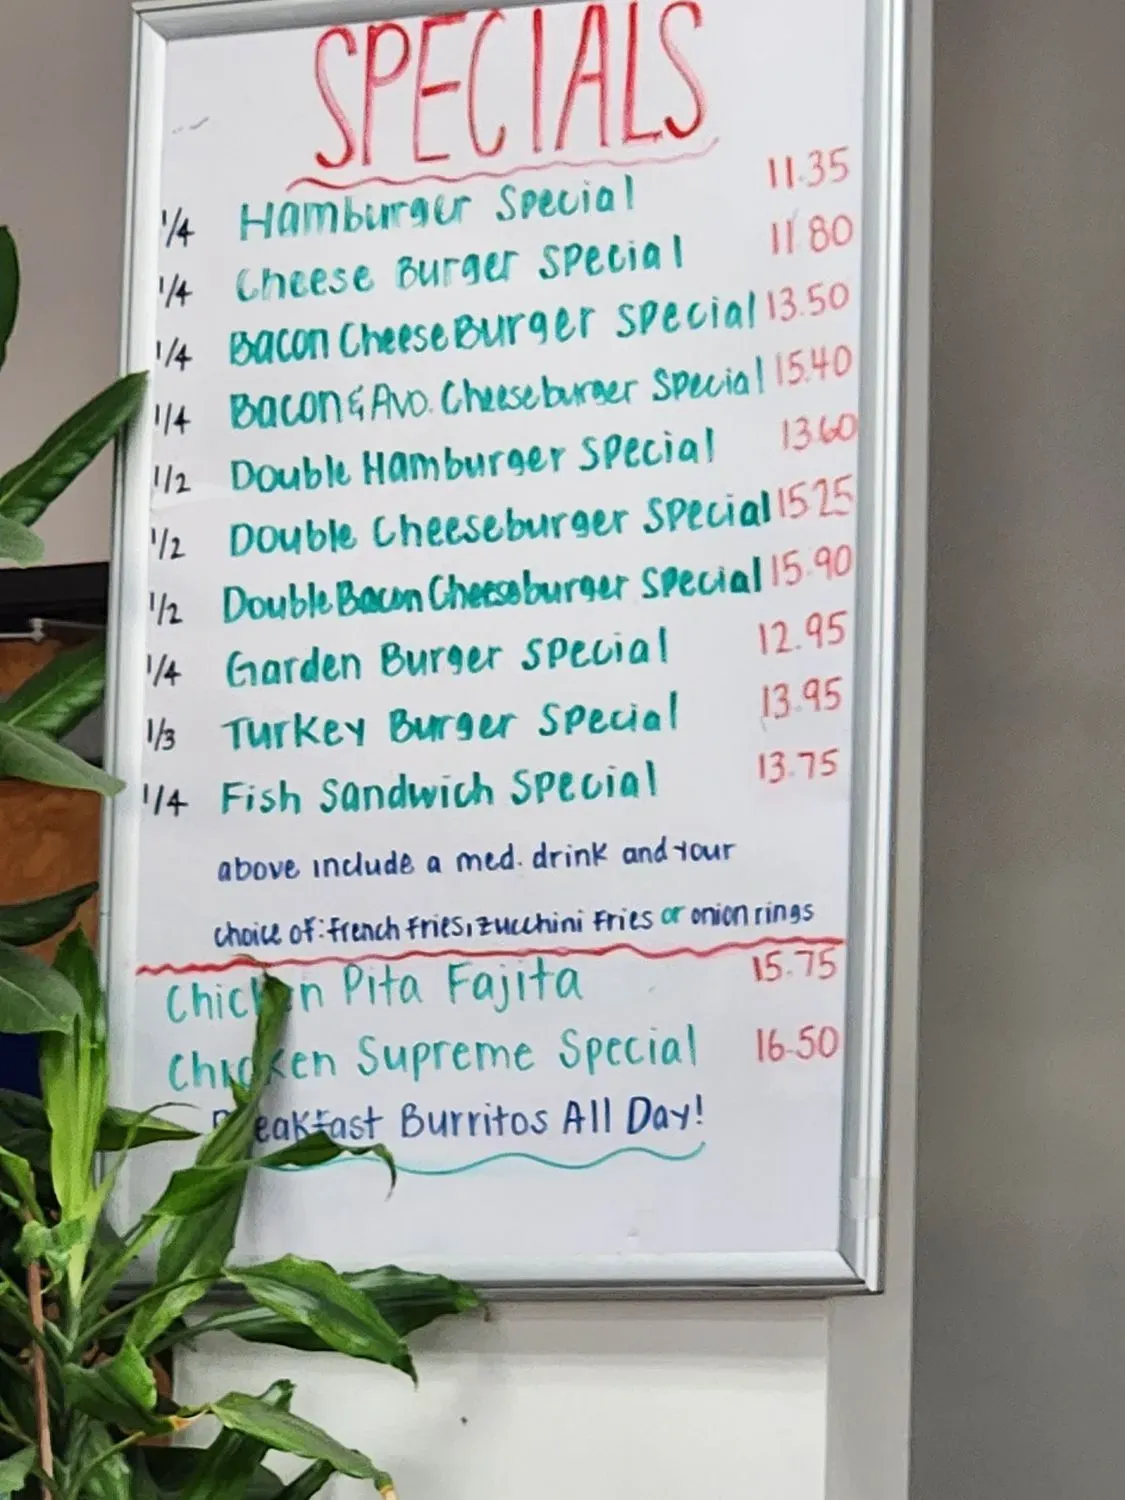 SPECIALS
1/4 Hamburger Special 11.35
1/4 Cheese Burger Special 11.80
1/4 Bacon Cheese Burger Special 13.50
1/4 Bacon & Avo. Cheeseburger Special 15.40
1/2 Double Hamburger Special 13.60
1/2 Double Cheeseburger Special 15 25
1/2 Double Bacon Cheeseburger Special 15.90
1/4 Garden Burger Special 12.95
1/3 Turkey Burger Special 13.95
1/4 Fish Sandwich Special 13.75
above include a med. drink and your
choice of: french fries, zucchini fries or onion rings
Chicken Pita Fajita 15.75
Chicken Supreme Special 16.50
Breakfast Burritos All Day!